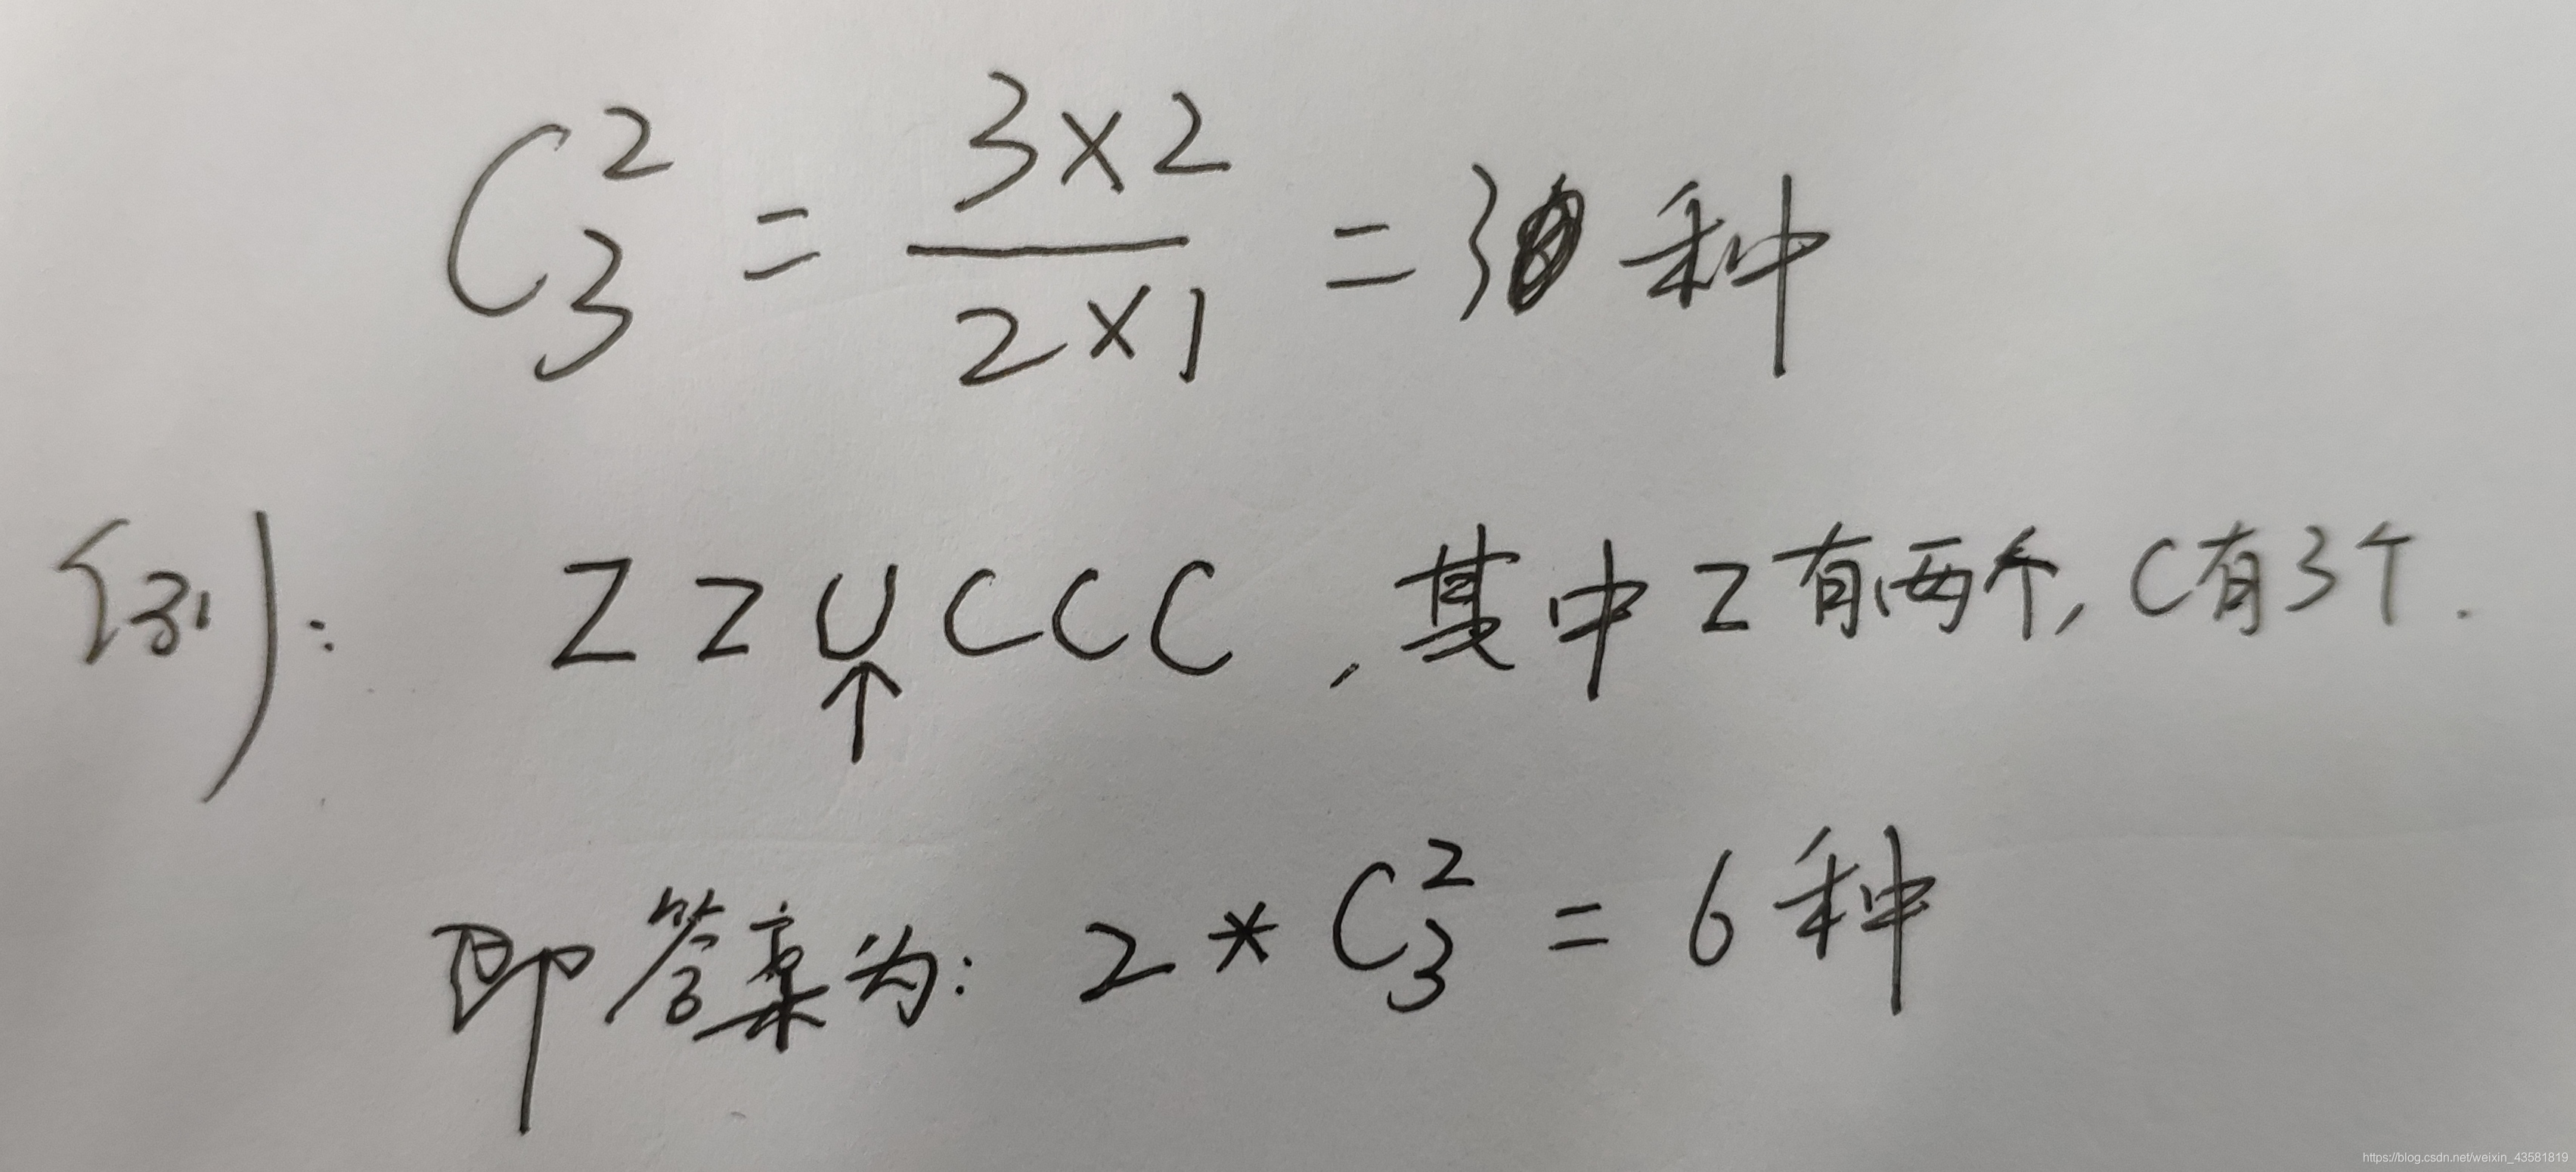 C₃² = 3×2 / 2×1 = 3 种
例: Z Z U C C C , 其中Z有两个, C有3个.
↑
即答案为: 2 * C₃² = 6 种
https://blog.csdn.net/weixin_43581819